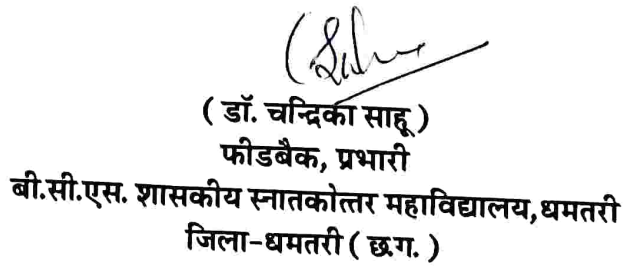 ( डॉ. चन्द्रिका साहू )
फीडबैक, प्रभारी
बी.सी.एस. शासकीय स्नातकोत्तर महाविद्यालय,धमतरी
जिला-धमतरी ( छ.ग. )